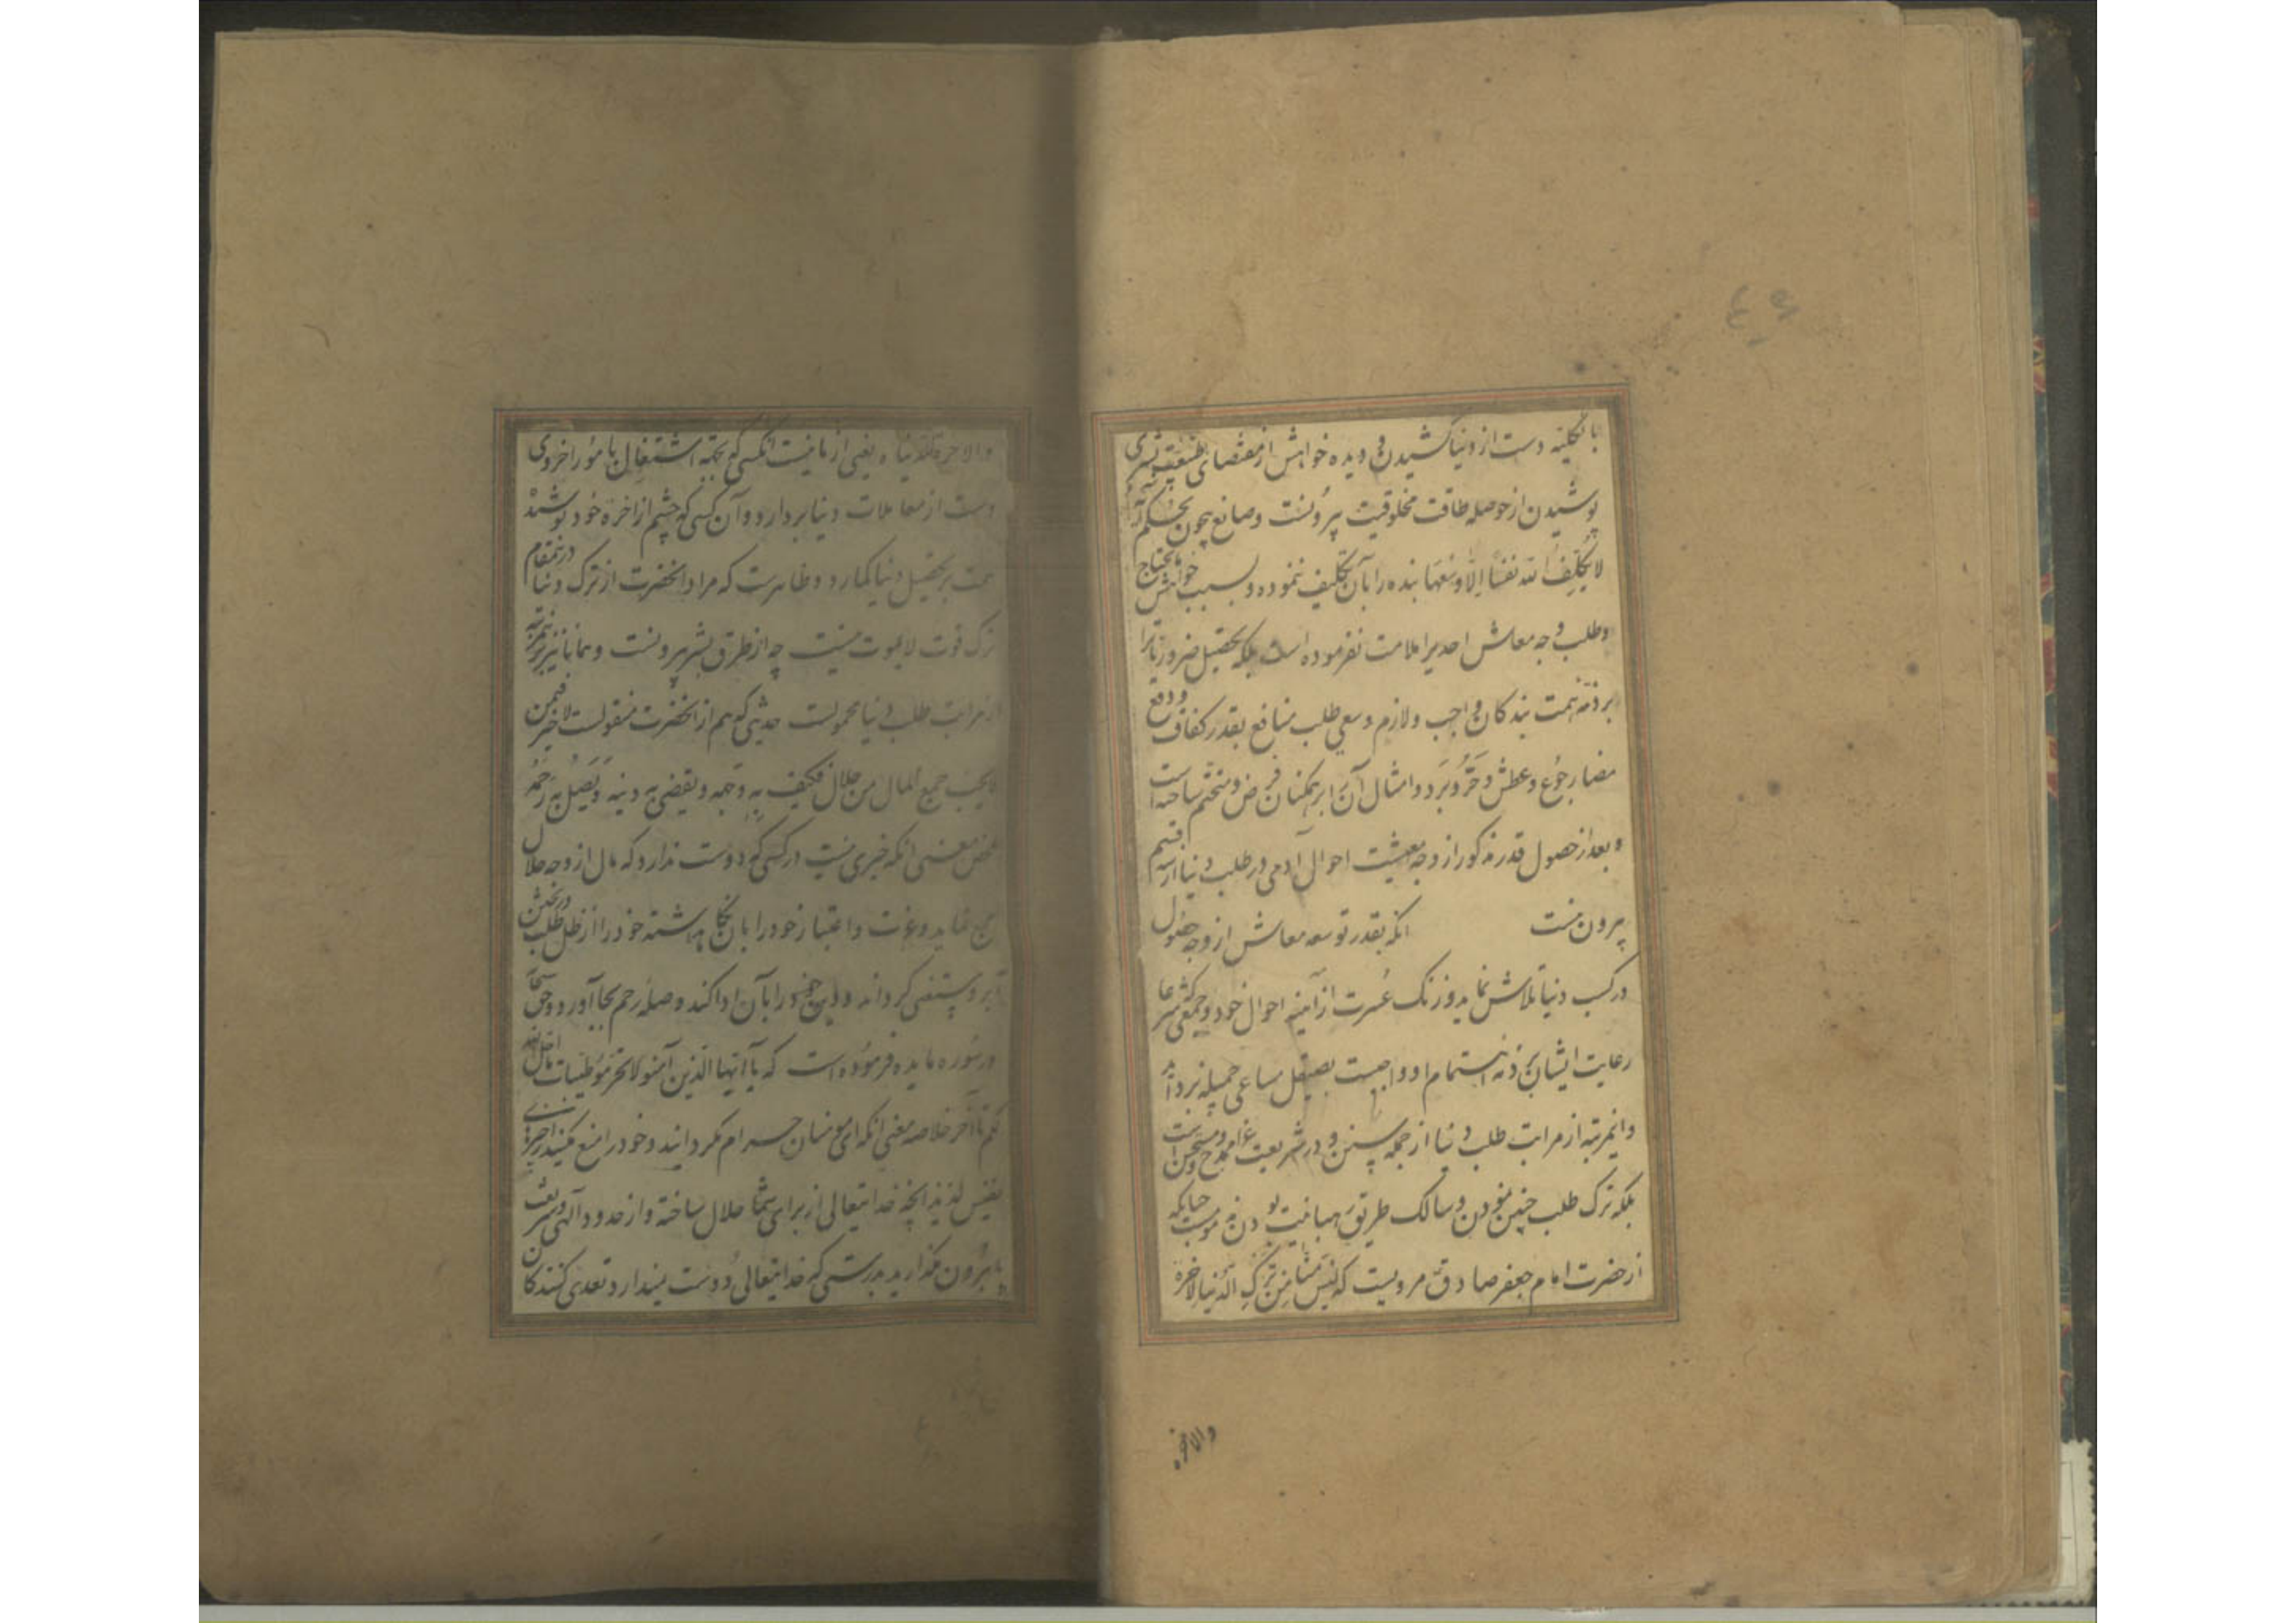 ۴۶
بالکلیه دست از دنیا کشیدن و دیده خواهش از مقتضای بشری
پوشیدن از حوصله طاقت مخلوقیت بیرونست و صانع بیچون بحکم
لا یکلف الله نفسا الا وسعها بنده را بآن تکلیف ننموده و بسبب خواهش مایحتاج
و طلب وجه معاش احدیرا ملامت نفرموده است بلکه تحصیل ضروریات را
بر ذمه همت بندکان واجب و لازم و سعی طلب منافع بقدر کفاف و دفع
مضار جوع و عطش و حر و برد و امثال آنرا بر همکنان فرض و متحتم ساخته است
و بعد از حصول قدر مذکور از وجه معیشت احوال آدمی در طلب دنیا از سه قسم
بیرون نیست انکه بقدر توسعه معاش از وجه حلال
در کسب دنیا تلاش نماید و زنک عسرت از آینه احوال خود و جمعی که شرعا
رعایت ایشان بر ذمه اهتمام او واجبست بصیقل مساعی جمیله بزداید
و اینمرتبه از مراتب طلب دنیا از جمله سنن و در شریعت غرا ممدوح و مستحسن است
بلکه ترک طلب چنین نمودن و سالک طریق رهبانیت بودن مذموست چنانکه
از حضرت امام جعفر صادق مرویست که لیس منا من ترک الدنیا لاخرة
والاخره
والاخرة للدنیا یعنی از ما نیست انکسی که بجهة اشتغال بامور اخروی
دست از معاملات دنیا بردارد و آن کسی که چشم از اخرة خود پوشیده
همت بر تحصیل دنیا کمارد و ظاهرست که مراد انحضرت از ترک دنیا درینمقام
ترک قوت لایموت نیست چه از طرق بشر بیرونست و همانا نیز بر اینمرتبه
از مراتب طلب دنیا محمولست حدیثی که هم از انحضرت منقولست لا خیر فیمن
لا یحب جمع المال من حلال فیکف به وجهه و یقضی به دینه و یصل به رحمه
محض معنی انکه خیری نیست در کسی که دوست ندارد که مال از وجه حلال
جمع نماید و عزت و اعتبار خود را بآن نکاه داشته خود را از ظل طلب در بخشش
آبرو مستغنی کرداند و دین خود را بآن ادا کند و صله رحم بجا آورد و حق سبحانه
در سوره مایده فرموده است که یا ایها الذین آمنوا لا تحرموا طیبات ما احل الله
لکم تا آخر خلاصه معنی انکه ای مومنان حرام مکردانید و خود را منع مکنید از چیزهای
نفیس لذیذ انچه خدایتعالی از برای شما حلال ساخته و از حدود آلهی و شریعت
پا بیرون مکذارید بدرستی که خدایتعالی دوست نمیدارد تعدی کنندکان